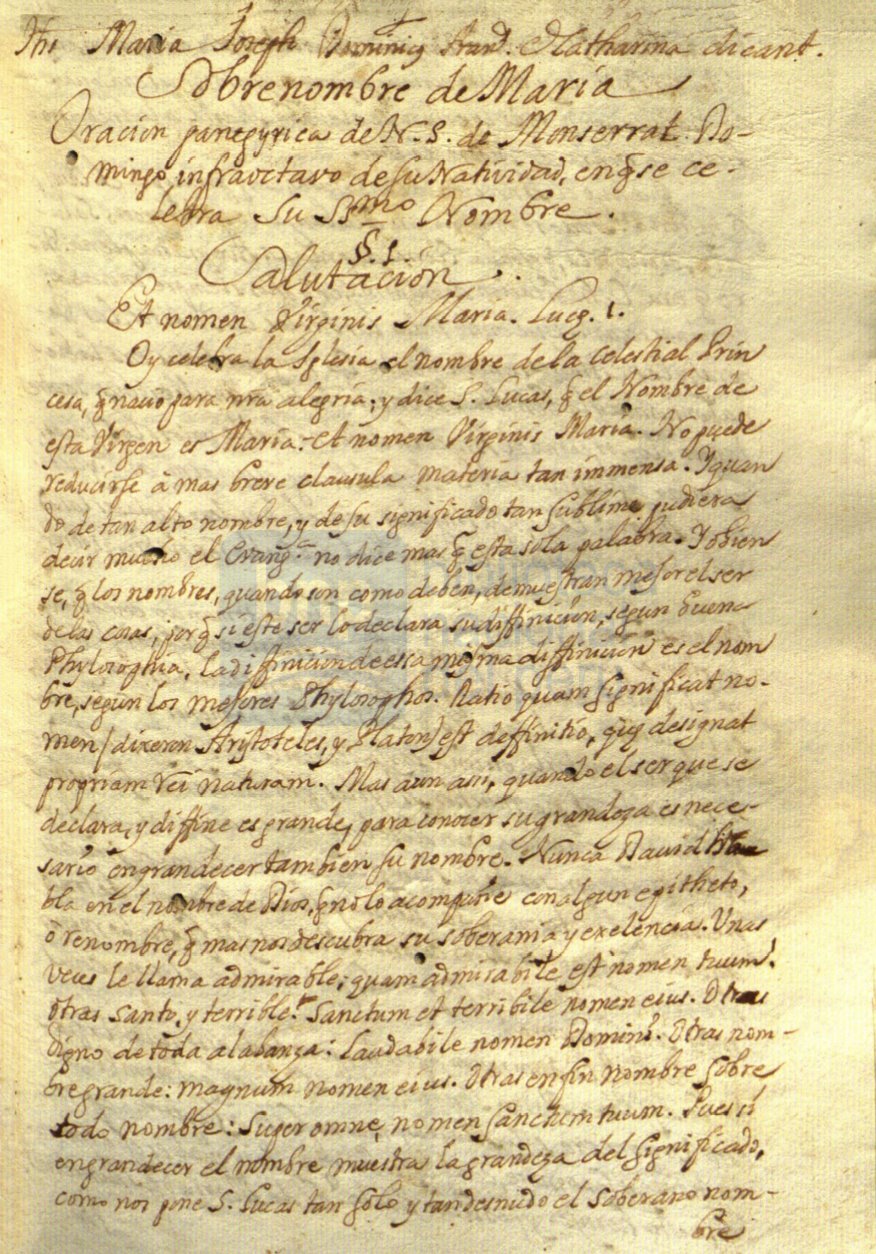 Jhs Maria Joseph Dominicus Frand. Catharina dicant.
Sobrenombre de Maria
Oracion panegyrica de N. S. de Monserrat. Do-
mingo infraoctavo de su Natividad, en q̃ se ce-
lebra su SSmo Nombre.
§. 1.
Salutación.
Et nomen Virginis Maria. Lucę. 1.
Oy celebra la Iglesia el nombre de la Celestial Prin
cesa, q̃ nacio para nr̃a alegria; y dice S. Lucas, q̃ el Nombre de
esta Virgen es Maria: et nomen Virginis Maria. No puede
reducirse à mas breve clausula materia tan immensa. Y quan
do de tan alto nombre, y de su significado tan sublime pudiera
decir mucho el Evangta no dice mas q̃ esta sola palabra. Yo bien
se, q̃ los nombres, quando son como deben, demuestran mejor el ser
de las cosas, porq̃ si este ser lo declara su diffinicion, segun buena
Phylosophia, la diffinicion de essa misma diffinicion es el nom
bre, segun los mejores Phylosophos. Ratio quam significat no-
men (dixeron Aristoteles, y Platon) est deffinitio, quę designat
propriam rei naturam. Mas aun assi, quando el ser que se
declara, y diffine es grande, para conocer su grandeza es nece-
sario engrandecer tambien su nombre. Nunca David ha
bla en el nombre de Dios, q̃ no lo acompañe con algun epitheto,
ò renombre, q̃ mas nos descubra su soberania y exelencia. Unas
veces le llama admirable; quam admirabile est nomen tuum!
otras santo, y terrible: Sanctum et terribile nomen eius. Otras
digno de toda alabanza: laudabile nomen Domini. Otras nom-
bre grande: magnum nomen eius. Otras en fin nombre sobre
todo nombre: Super omne, nomen sanctum tuum. Pues si
engrandecer el nombre muestra la grandeza del significado,
como nos pone S. Lucas tan solo y tan desnudo el soberano nom-
bre